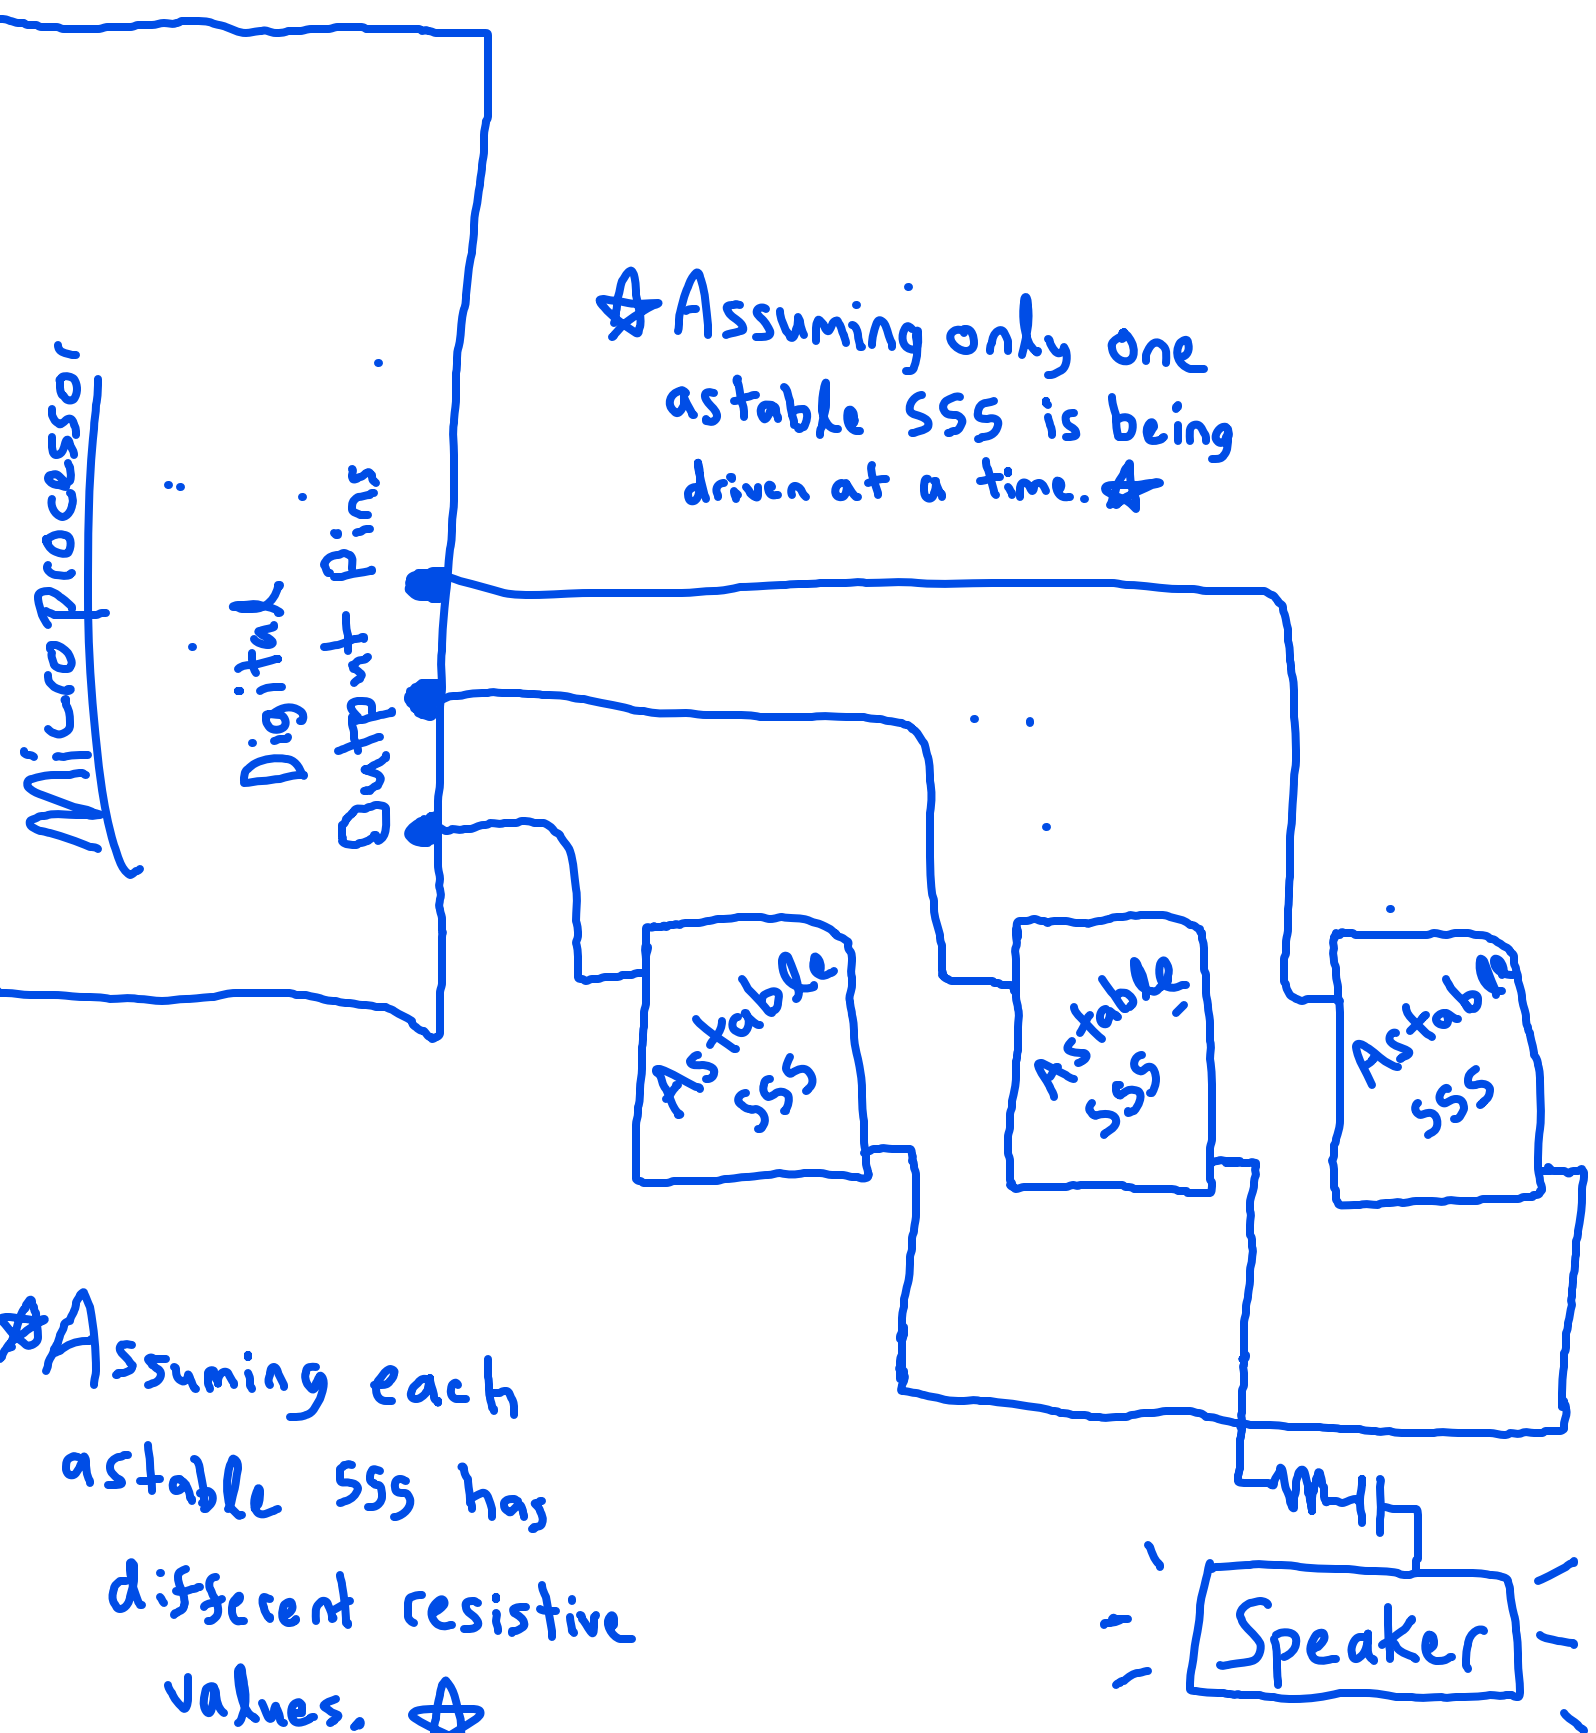 Microprocessor
Digital
Output Pins
☆Assuming only one
astable 555 is being
driven at a time.☆
Astable
555
Astable
555
Astable
555
☆Assuming each
astable 555 has
different resistive
values. ☆
Speaker